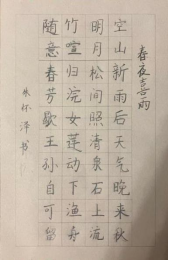 春夜喜雨
空山新雨后天气晚来秋
明月松间照清泉石上流
竹喧归浣女莲动下渔舟
随意春芳歇王孙自可留
朱怀泽书